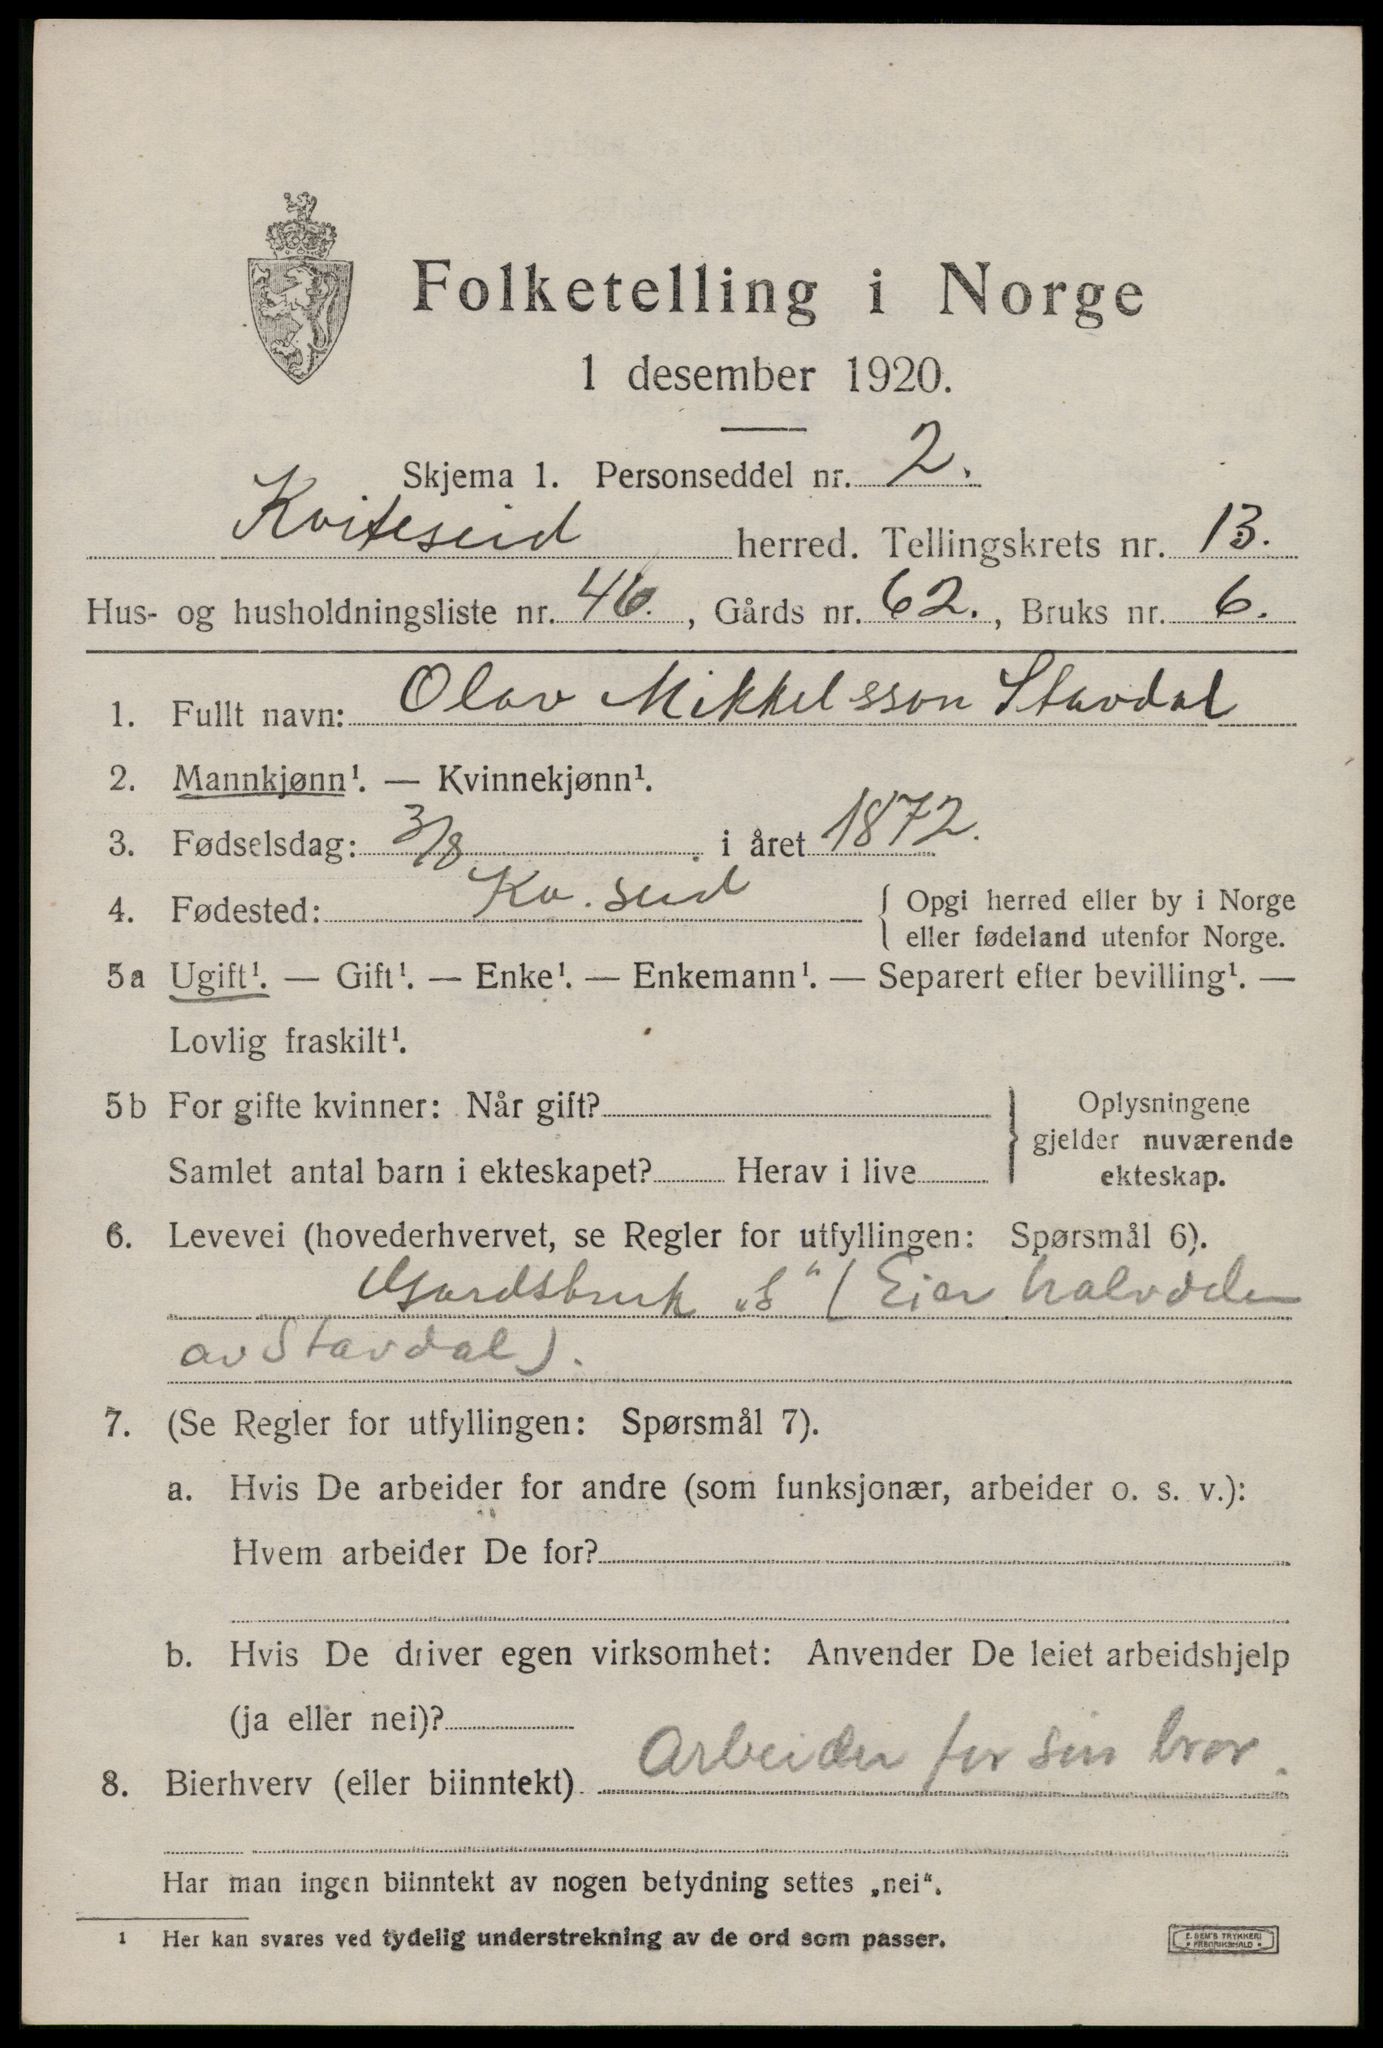 Folketelling i Norge
1 desember 1920.
Skjema 1. Personseddel nr. 2.
Kviteseid herred. Tellingskrets nr. 13.
Hus- og husholdningsliste nr. 46., Gårds nr. 62., Bruks nr. 6.
1. Fullt navn: Olav Mikkelsson Stavdal
2. Mannkjønn¹. — Kvinnekjønn¹.
3. Fødselsdag: 3/8 i året 1872.
4. Fødested: Kv.seid { Opgi herred eller by i Norge
eller fødeland utenfor Norge.
5a Ugift¹. — Gift¹. — Enke¹. — Enkemann¹. — Separert efter bevilling¹. —
Lovlig fraskilt¹.
5b For gifte kvinner: Når gift? } Oplysningene
gjelder nuværende
Samlet antal barn i ekteskapet? Herav i live
ekteskap.
6. Levevei (hovederhvervet, se Regler for utfyllingen: Spørsmål 6).
Gardsbruk „S“ (Eier halvdelen
av Stavdal).
7. (Se Regler for utfyllingen: Spørsmål 7).
a. Hvis De arbeider for andre (som funksjonær, arbeider o. s. v.):
Hvem arbeider De for?
b. Hvis De driver egen virksomhet: Anvender De leiet arbeidshjelp
(ja eller nei)?
8. Bierhverv (eller biinntekt) Arbeider for sin bror.
Har man ingen biinntekt av nogen betydning settes „nei“.
1 Her kan svares ved tydelig understrekning av de ord som passer.
E. SEM'S TRYKKERI
• FREDRIKSHALD •